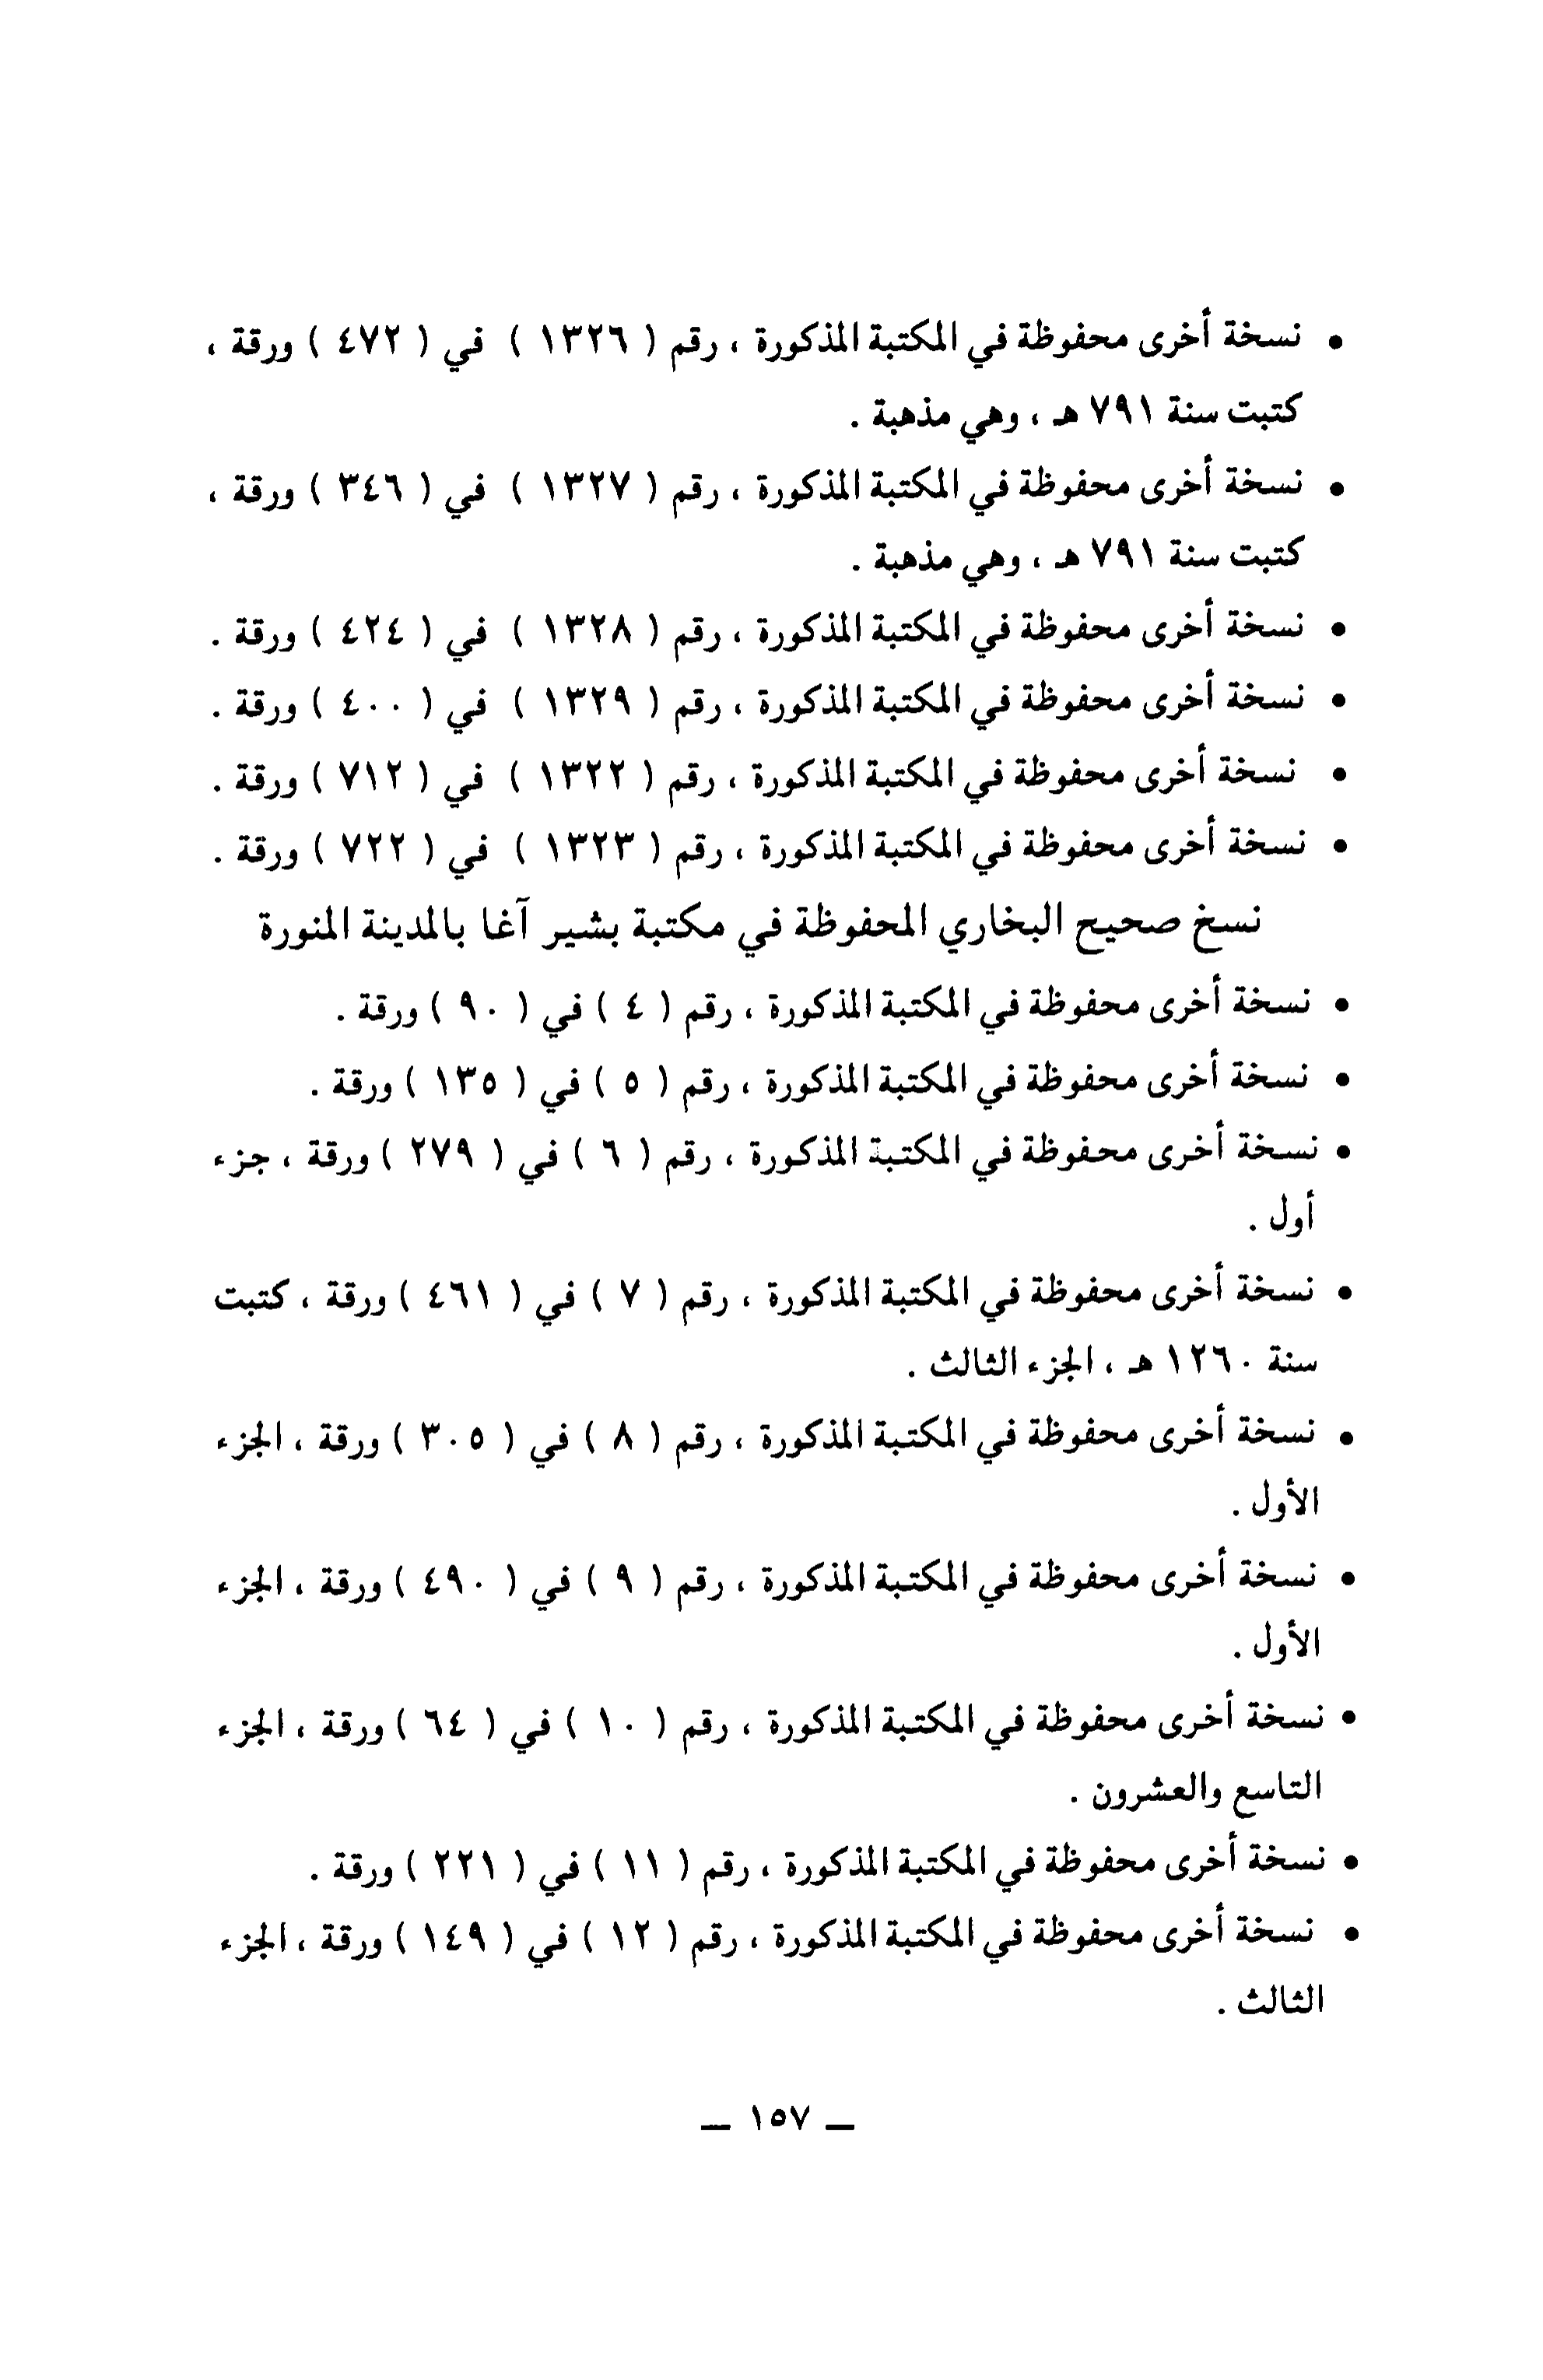 • نسخة أخرى محفوظة في المكتبة المذكورة ، رقم ( ١٣٢٦ ) في ( ٤٧٢ ) ورقة ،
كتبت سنة ٧٩١ هـ ، وهي مذهبة .
• نسخة أخرى محفوظة في المكتبة المذكورة ، رقم ( ١٣٢٧ ) في ( ٣٤٦ ) ورقة ،
كتبت سنة ٧٩١ هـ ، وهي مذهبة .
• نسخة أخرى محفوظة في المكتبة المذكورة ، رقم ( ١٣٢٨ ) في ( ٤٢٤ ) ورقة .
• نسخة أخرى محفوظة في المكتبة المذكورة ، رقم ( ١٣٢٩ ) في ( ٤٠٠ ) ورقة .
• نسخة أخرى محفوظة في المكتبة المذكورة ، رقم ( ١٣٢٢ ) في ( ٧١٢ ) ورقة .
• نسخة أخرى محفوظة في المكتبة المذكورة ، رقم ( ١٣٢٣ ) في ( ٧٢٢ ) ورقة .
نسخ صحيح البخاري المحفوظة في مكتبة بشير آغا بالمدينة المنورة
• نسخة أخرى محفوظة في المكتبة المذكورة ، رقم ( ٤ ) في ( ٩٠ ) ورقة .
• نسخة أخرى محفوظة في المكتبة المذكورة ، رقم ( ٥ ) في ( ١٣٥ ) ورقة .
• نسخة أخرى محفوظة في المكتبة المذكورة ، رقم ( ٦ ) في ( ٢٧٩ ) ورقة ، جزء
أول .
• نسخة أخرى محفوظة في المكتبة المذكورة ، رقم ( ٧ ) في ( ٤٦١ ) ورقة ، كتبت
سنة ١٢٦٠ هـ ، الجزء الثالث .
• نسخة أخرى محفوظة في المكتبة المذكورة ، رقم ( ٨ ) في ( ٣٠٥ ) ورقة ، الجزء
الأول .
• نسخة أخرى محفوظة في المكتبة المذكورة ، رقم ( ٩ ) في ( ٤٩٠ ) ورقة ، الجزء
الأول .
• نسخة أخرى محفوظة في المكتبة المذكورة ، رقم ( ١٠ ) في ( ٦٤ ) ورقة ، الجزء
التاسع والعشرون .
• نسخة أخرى محفوظة في المكتبة المذكورة ، رقم ( ١١ ) في ( ٢٢١ ) ورقة .
• نسخة أخرى محفوظة في المكتبة المذكورة ، رقم ( ١٢ ) في ( ١٤٩ ) ورقة ، الجزء
الثالث .
— ١٥٧ —